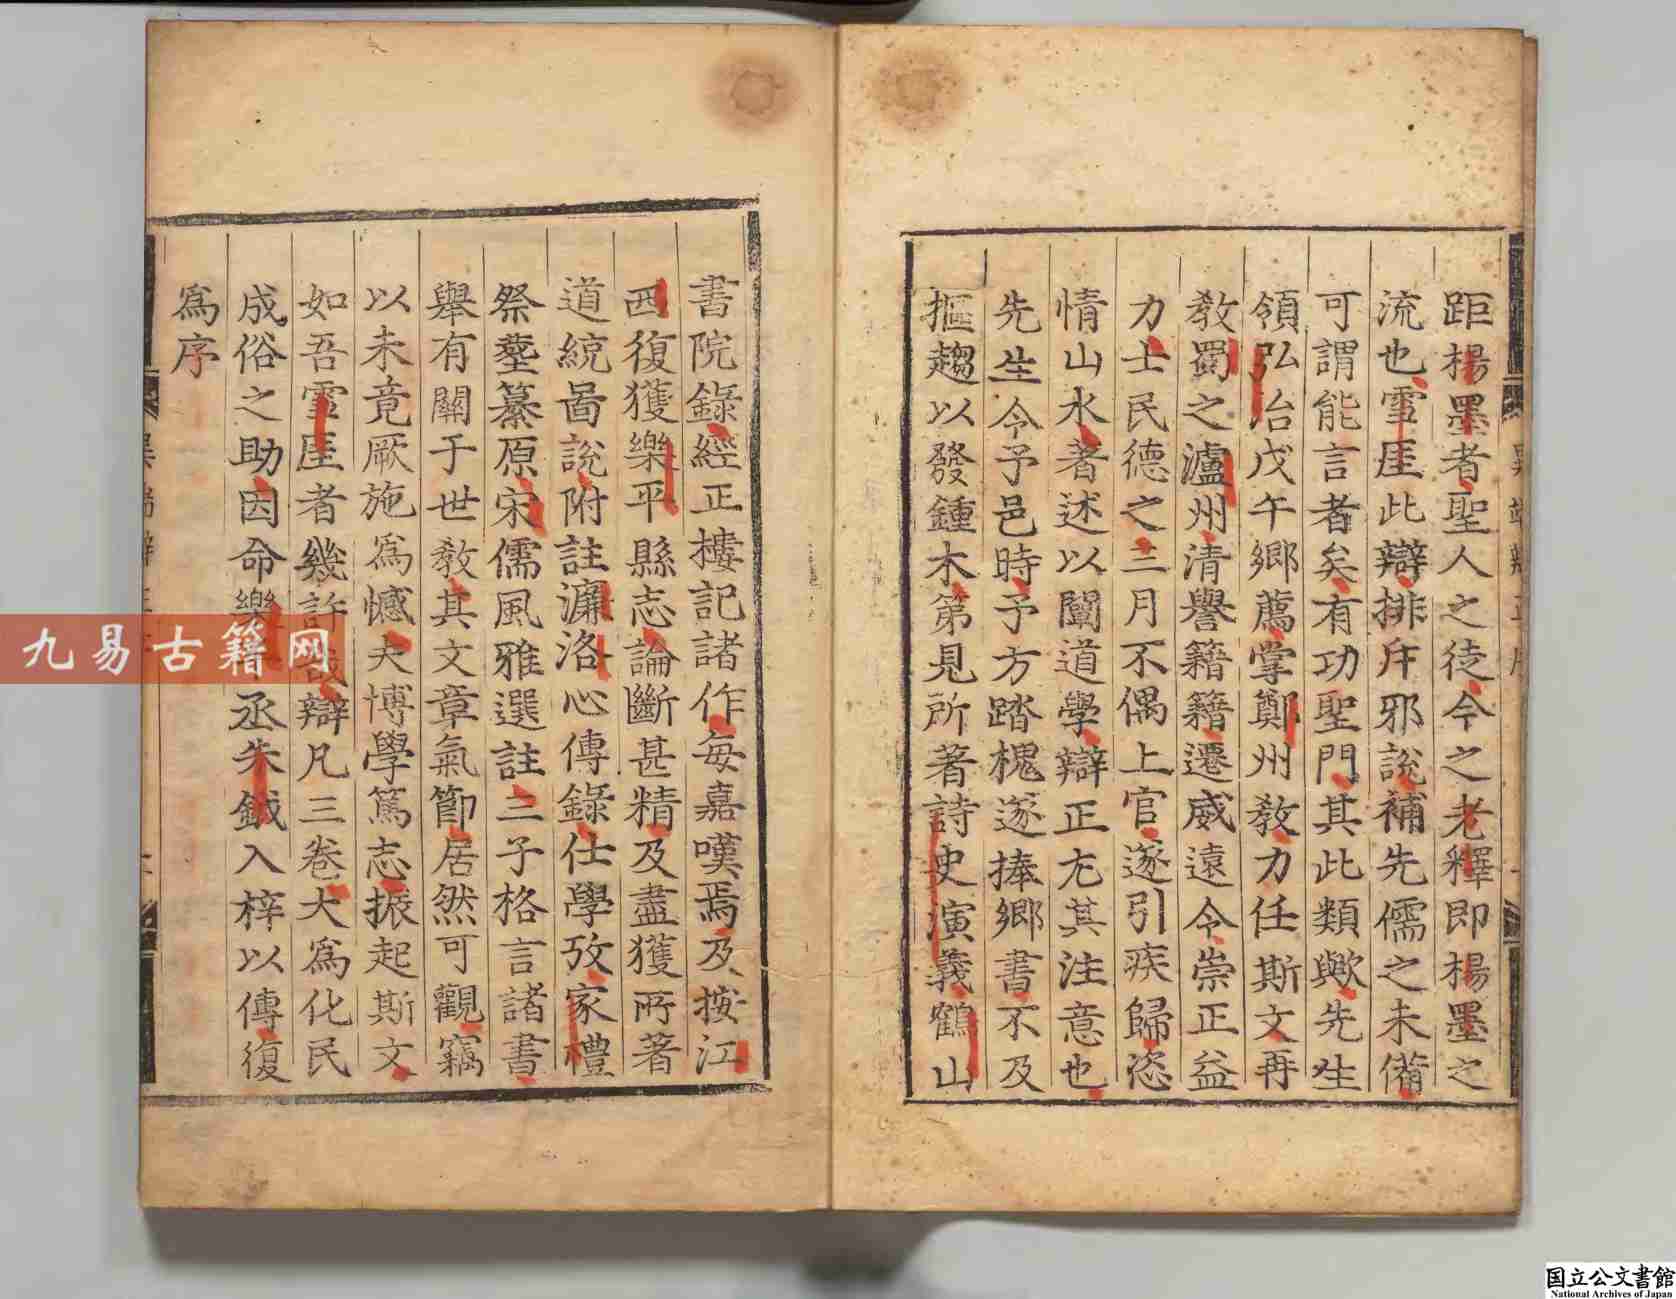 距楊墨者聖人之徒今之老釋即楊墨之
流也雪厓此辯排斥邪說補先儒之未備
可謂能言者矣有功聖門其此類歟先生
領弘治戊午鄉薦掌鄭州教力任斯文再
教蜀之瀘州清譽籍籍遷威遠令崇正益
力士民德之三月不偶上官遂引疾歸恣
情山水著述以闡道學辯正尤其注意也
先生令予邑時予方踏槐遂捧鄉書不及
摳趨以發鍾木第見所著詩史演義鶴山
書院錄經正樓記諸作每嘉嘆焉及按江
西復獲樂平縣志論斷甚精及盡獲所著
道統啚說附註濂洛心傳錄仕學攷家禮
祭塟纂原宋儒風雅選註三子格言諸書
舉有關于世教其文章氣節居然可觀竊
以未竟厥施為憾夫博學篤志振起斯文
如吾雪厓者幾許哉辯凡三卷大為化民
成俗之助因命樂丞朱鉞入梓以傳復
為序
異端辯正序
九易古籍网
国立公文書館
National Archives of Japan